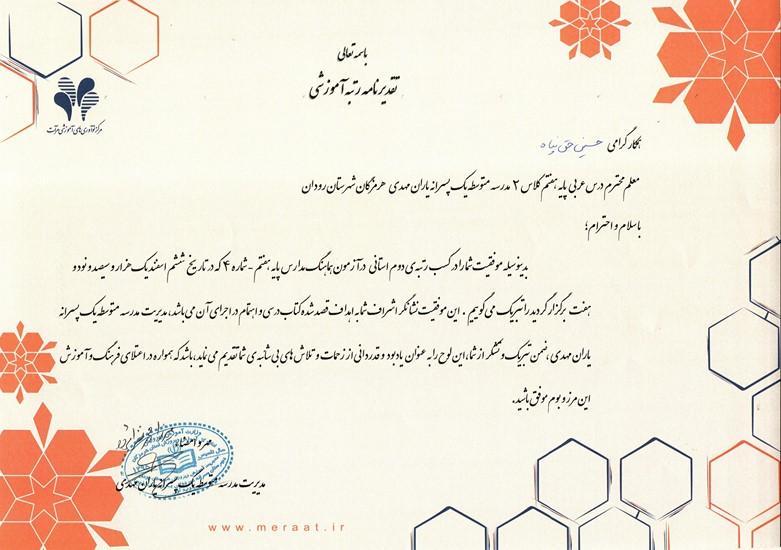 باسمه تعالی
تقدیرنامه رتبه آموزشی
مرکز نوآوری های آموزشی مرآت
همکار گرامی حسینی حق پناه
معلم محترم درس عربی پایه هفتم کلاس ۲ مدرسه متوسطه یک پسرانه یاران مهدی هرمزگان شهرستان رودان
با سلام و احترام؛
بدینوسیله موفقیت شما را در کسب رتبه ی دوم استانی در آزمون هماهنگ مدارس پایه هفتم - شماره ۴ که در تاریخ ششم اسفند یک هزار و سیصد و نود و
هفت برگزار گردید را تبریک می گوییم . این موفقیت نشانگر اشراف شما به اهداف قصد شده کتاب درسی و اهتمام در اجرای آن می باشد، مدیریت مدرسه متوسطه یک پسرانه
یاران مهدی، ضمن تبریک و تشکر از شما، این لوح را به عنوان یادبود و قدردانی از زحمات و تلاش های بی شائبه ی شما تقدیم می نماید، باشد که همواره در اعتلای فرهنگ و آموزش
این مرز و بوم موفق باشید.
مهر و امضاء
مدیریت مدرسه متوسطه یک پسرانه یاران مهدی
www.meraat.ir